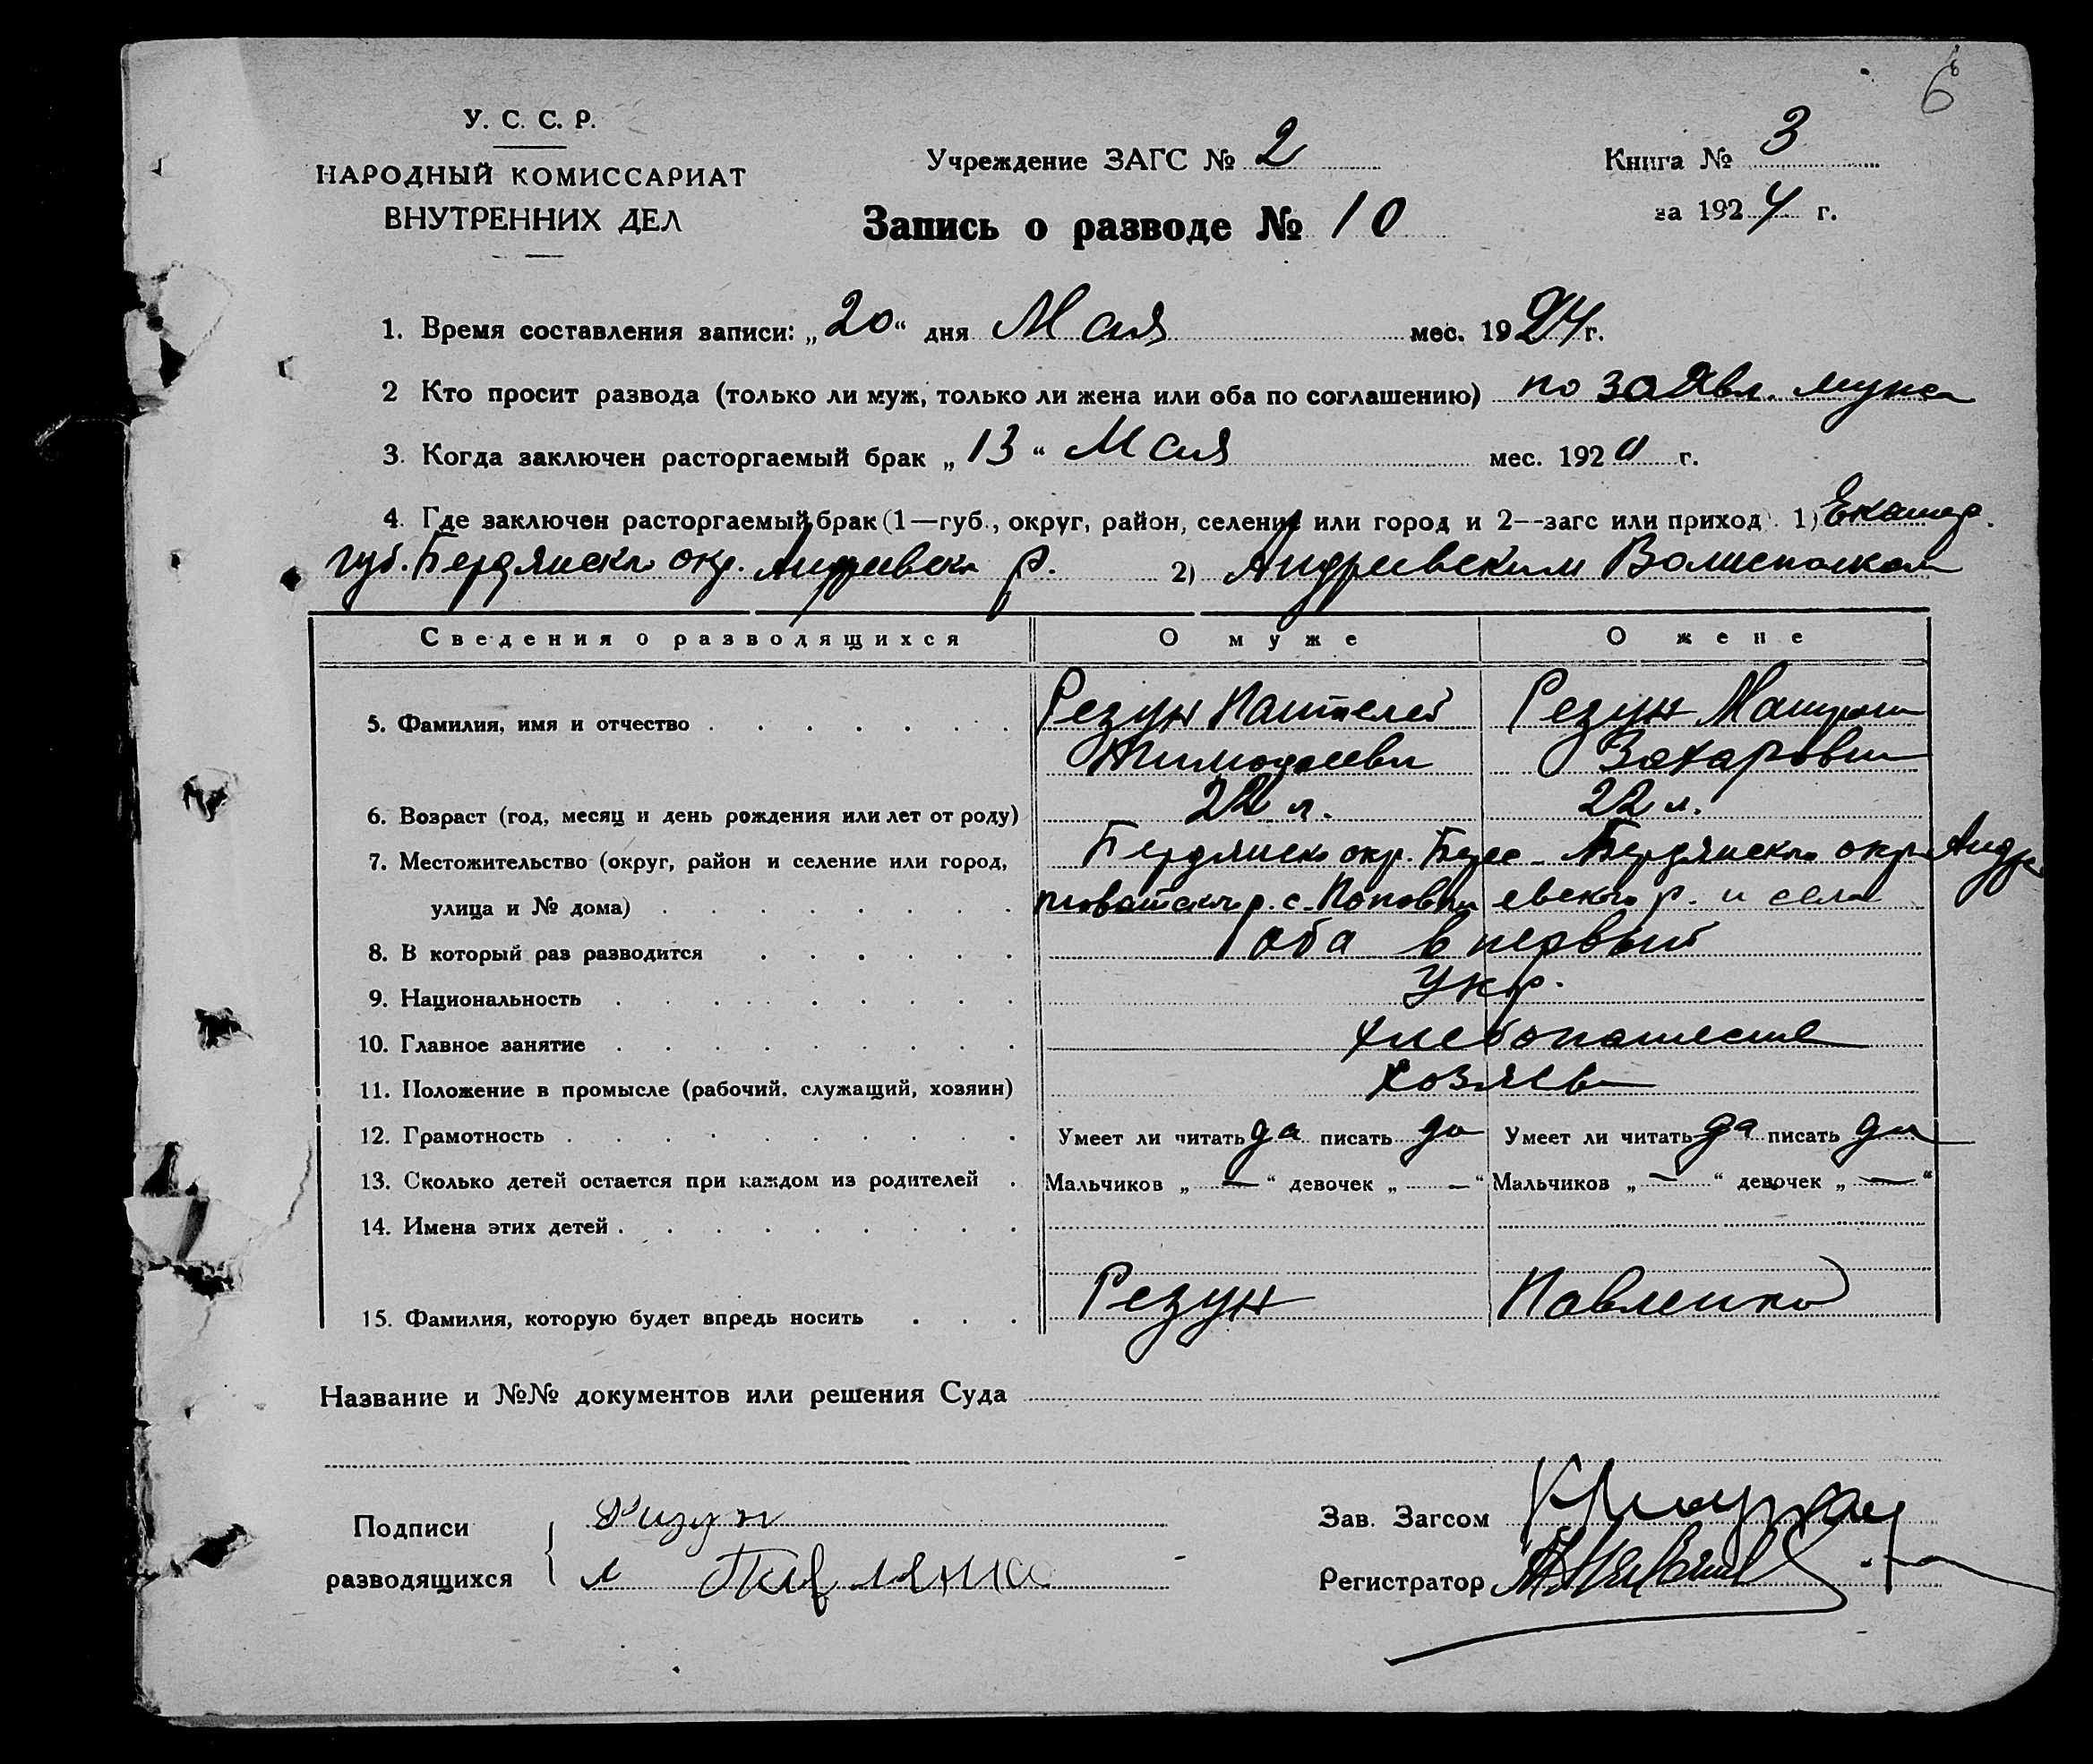 6
У. С. С. Р.
НАРОДНЫЙ КОМИССАРИАТ
ВНУТРЕННИХ ДЕЛ
Учреждение ЗАГС № 2
Запись о разводе № 10
Книга № 3
за 1924 г.
1. Время составления записи: „20“ дня Мая мес. 1924 г.
2 Кто просит развода (только ли муж, только ли жена или оба по соглашению) по заявл. мужа
3. Когда заключен расторгаемый брак „13“ Мая мес. 1920 г.
4. Где заключен расторгаемый брак (1—губ., округ, район, селение или город и 2--загс или приход). 1) Екатер.
губ. Бердянск окр. Андреевск р. 2) Андреевским Волисполком
Сведения о разводящихся О муже О жене
5. Фамилия, имя и отчество Резун Пантелей Резун
Тимофееви Захаровна
6. Возраст (год, месяц и день рождения или лет от роду) 22 л. 22 л.
7. Местожительство (округ, район и селение или город, Бердянск окр. Бердянского окр. Андре
улица и № дома) р. с. Поповки евского р. и села
8. В который раз разводится оба в первый
9. Национальность Укр.
10. Главное занятие хлебопашество
11. Положение в промысле (рабочий, служащий, хозяин) хозяева
12. Грамотность Умеет ли читать да писать да Умеет ли читать да писать да
13. Сколько детей остается при каждом из родителей Мальчиков „ — “ девочек „ — “ Мальчиков „ — “ девочек „ — “
14. Имена этих детей
15. Фамилия, которую будет впредь носить Резун Павленко
Название и №№ документов или решения Суда
Подписи Ризун Зав. Загсом
разводящихся Регистратор